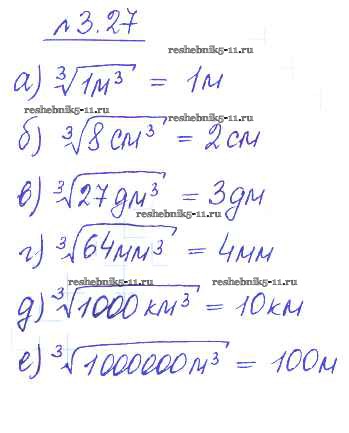 № 3.27
reshebniks5-11.ru
а) ³√1м³ = 1м
reshebniks5-11.ru
reshebniks5-11.ru
б) ³√8см³ = 2см
в) ³√27дм³ = 3дм
reshebniks5-11.ru
г) ³√64мм³ = 4мм
reshebniks5-11.ru reshebniks5-11.ru
д) ³√1000км³ = 10км
е) ³√1000000м³ = 100м